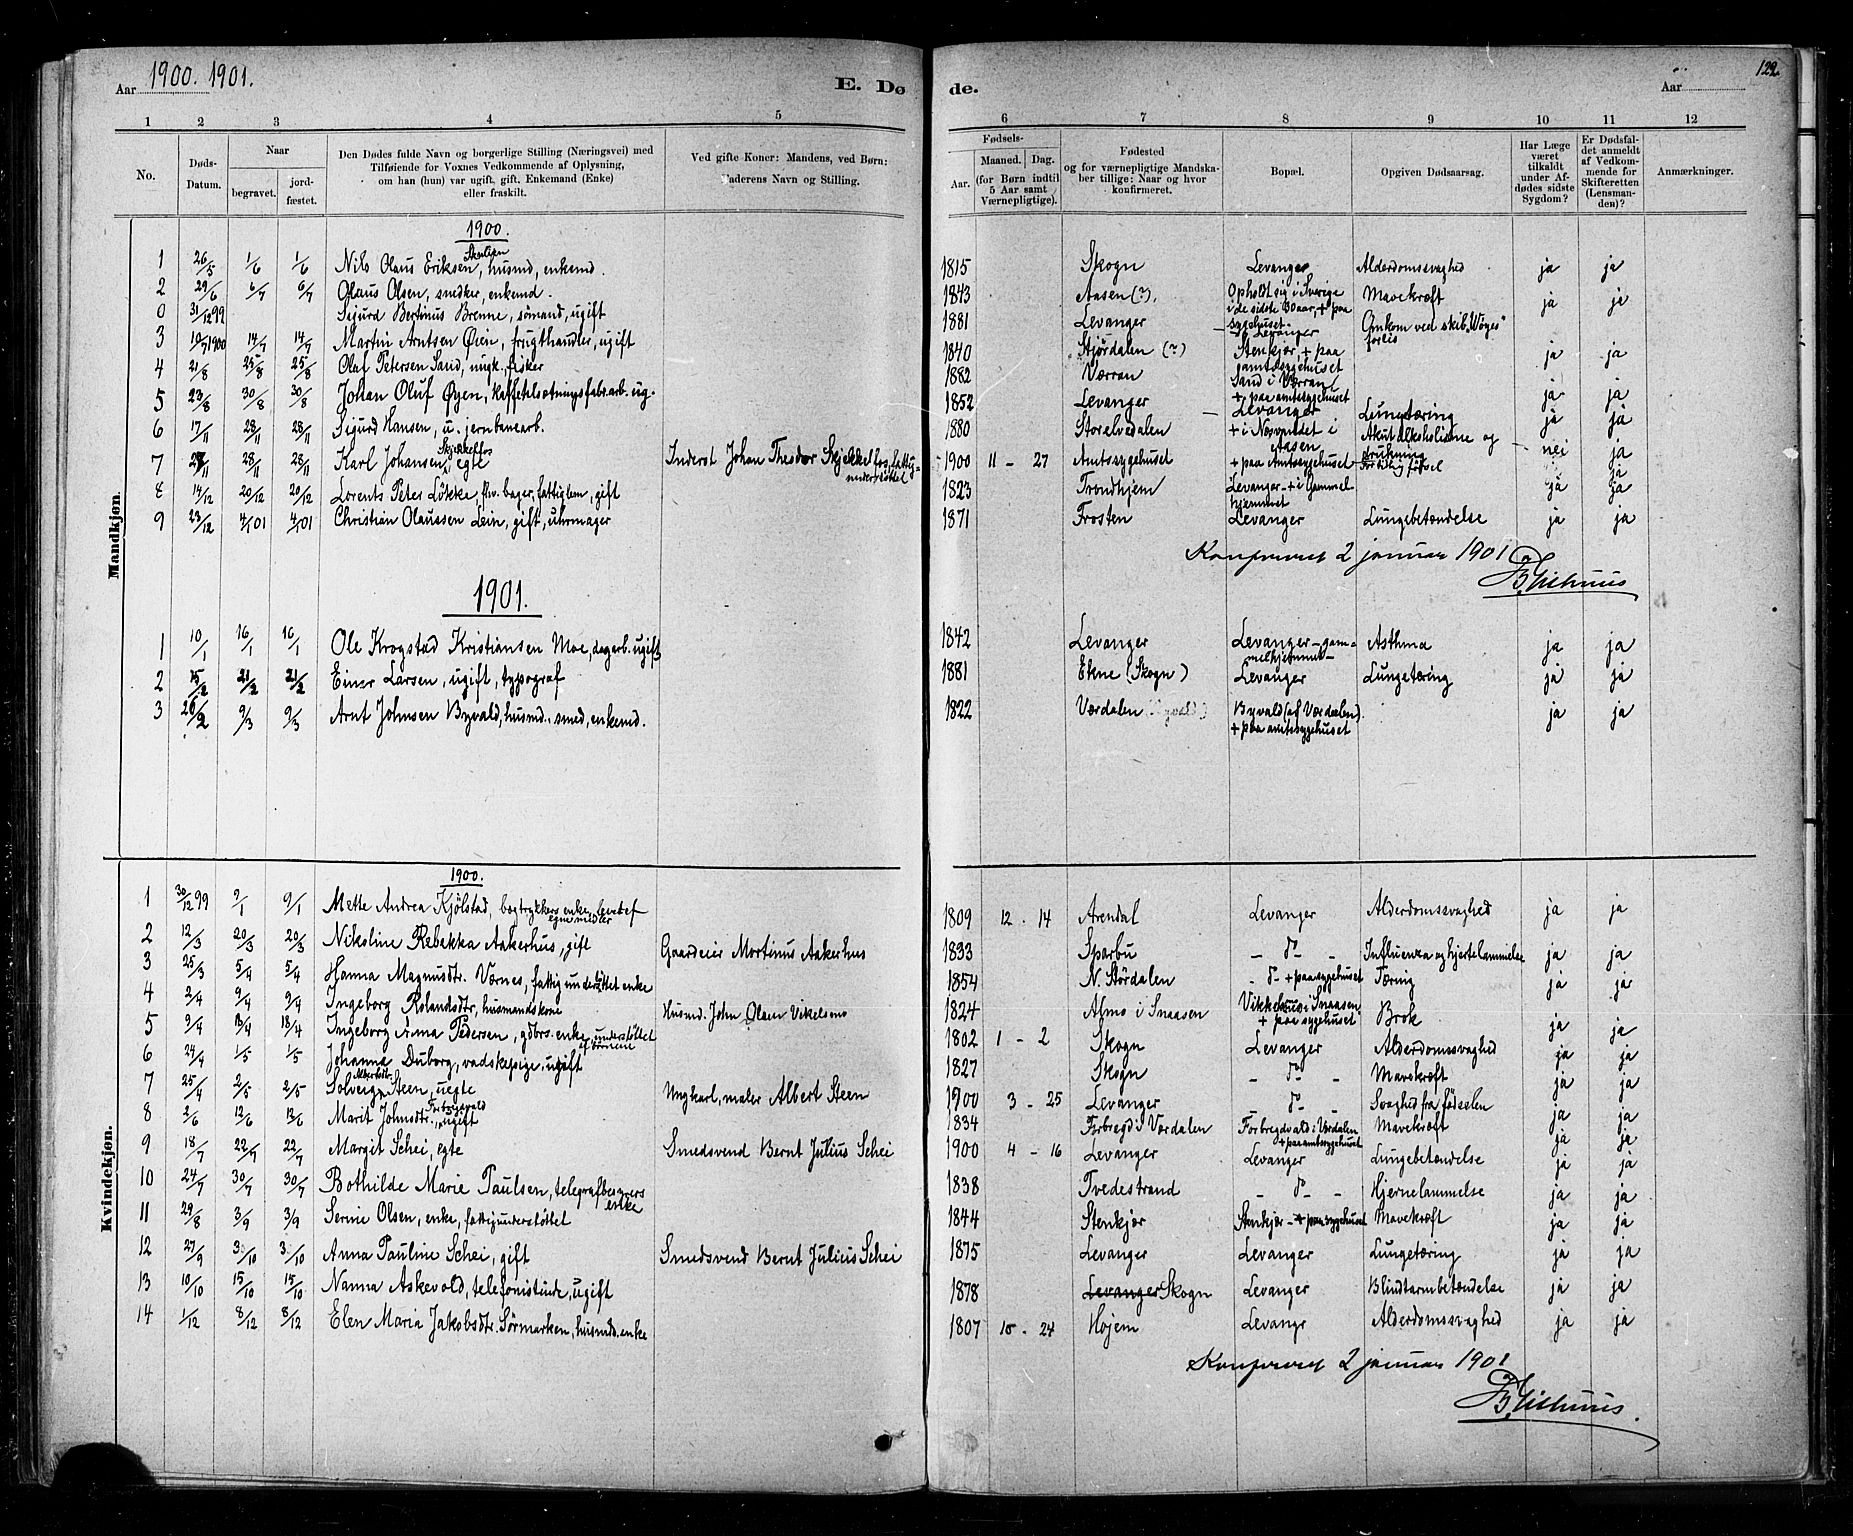 Aar 1900. 1901.
E. Dø
de.
Aar
122.
1 2 3 4 5 6 7 8 9 10 11 12
No.
Døds-Datum.
Naar
begravet.
jord-fæstet.
Den Dødes fulde Navn og borgerlige Stilling (Næringsvei) med
Tilføiende for Voxnes Vedkommende af Oplysning,
om han (hun) var ugift, gift, Enkemand (Enke)
eller fraskilt.
Ved gifte Koner: Mandens, ved Børn:
Faderens Navn og Stilling.
Fødsels-
Aar.
Maaned. Dag.
(for Børn indtil
5 Aar samt
Værnepligtige).
Fødested
og for værnepligtige Mandska-
ber tillige: Naar og hvor
konfirmeret.
Bopæl.
Opgiven Dødsaarsag.
Har Læge
været
tilkaldt
under Af-
dødes sidste
Sygdom?
Er Dødsfal-
det anmeldt
af Vedkom-
mende for
Skifteretten
(Lensman-
den)?
Anmærkninger.
Mandkjøn.
1900.
1 26/5 1/6 1/6 Nils Olaus Eriksen, husmd, enkemd. 1815 Skogn Levanger Alderdomssvaghed ja ja
2 29/6 6/7 6/7 Olaus Olsen, snedker, enkemd. 1843 Aasen (?). Opholdt sig i Sverige i de sidste 30 aar, + paa sygehuset. Mavekræft ja ja
0 31/12 99 Sigurd Bertinus Brenne, sømand, ugift 1881 Levanger Levanger Omkom ved skib. "Nøges" forlis
3 10/7 1900 14/7 14/7 Martin Arntsen Øien, frugthandler, ugift 1840 Stjørdalen (?) Stenkjær, + paa amtssygehuset ja ja
4 21/8 25/8 25/8 Olaf Petersen Sand, ungk., fisker 1882 Værran Sand i Værran + paa amtssygehuset ja ja
5 23/8 30/8 30/8 Johan Oluf Øyen, kaffetilsetningsfabr.arb. ug. 1852 Levanger Levanger Lungetæring ja ja
6 17/11 28/11 28/11 Sigurd Hansen, u. jernbanearb. 1880 Storelvedalen + i Næsvandet i Aasen Akut alkoholisme og drukning nei ja
7 27/11 28/11 28/11 Karl Johansen Skjækkefos, egte Inderst Johan Theodor Skjækkefos, fattigunderstøttet 1900 11 - 27 Amtssygehuset + paa Amtssygehuset Fortidlig fødsel ja
8 14/12 20/12 20/12 Lorents Peter Løkke, fhv. bager, fattiglem, gift 1823 Trondhjem Levanger - + i Gammelhjemmet ja ja
9 23/12 4/1 01 4/1 01 Christian Olaussen Lein, gift, uhrmager 1871 Frosten Levanger Lungebetændelse ja ja
Konfereret 2 januar 1901
1901.
1 10/1 16/1 16/1 Ole Krogstad Kristiansen Moe, dagarb. ugift 1842 Levanger Levanger - gammelhjemmet - Asthma ja ja
2 15/2 21/2 21/2 Einar Larsen, ugift, typograf 1881 Ekne (Skogn) Levanger Lungetæring ja ja
3 26/2 9/3 9/3 Arnt Johnsen Byvald, husmd., smed, enkemd. 1822 Værdalen (Byvald) Byvald (af Værdalen). + paa amtssygehuset ja ja
Kvindekjøn.
1900.
1 30/12 99 9/1 9/1 Mette Andrea Kjølstad, bogtrykkers enke, levede af egne midler 1809 12 - 14 Arendal Levanger Alderdomssvaghed ja ja
2 12/3 20/3 20/3 Nikoline Rebekka Aakerhus, gift Gaardeier Mortinus Aakerhus 1833 Sparbu - do - Influenza og hjertelammelse ja ja
3 25/3 5/4 5/4 Hanna Magnusdtr. Værnes, fattigunderstøttet enke 1854 N. Stördalen - do - + paa sygehuset Tæring ja ja
4 2/4 9/4 9/4 Ingeborg Rolandsdtr, husmandskone Husmd. John Olsen Vikelsmo 1824 Almo i Snaasen Vikkelsmo i Snaasen + paa sygehuset Brok ja ja
5 9/4 18/4 18/4 Ingeborg Anna Pedersen, gdbrs. enke, understøttet af børnene 1802 1 - 2 Skogn Levanger Alderdomssvaghed ja ja
6 24/4 1/5 1/5 Johanna Duborg, vadskepige, ugift 1827 Skogn - do - Mavekræft ja ja
7 25/4 2/5 2/5 Solveig Albertsdtr. Steen, uegte Ungkarl, maler Albert Steen 1900 3 - 25 Levanger - do - Svaghed fra fødselen ja ja
8 2/6 12/6 12/6 Marit Johnsdtr. Forbregsvald, ugift 1834 Forbregd i Værdalen Forbregdvald i Værdalen + paa amtssygehuset Mavekræft ja ja
9 18/7 22/7 22/7 Margit Schei, egte Smedsvend Bernt Julius Schei 1900 4 - 16 Levanger Levanger Lungebetændelse ja ja
10 24/7 30/7 30/7 Bothilde Marie Paulsen, telegrafbestyrers enke 1838 Tvedestrand - do - Hjernelammelse ja ja
11 29/8 3/9 3/9 Serine Olsen, enke, fattigunderstøttet 1844 Stenkjær Stenkjær - + paa sygehuset Mavekræft ja ja
12 27/9 3/10 3/10 Anna Pauline Schei, gift Smedsvend Bernt Julius Schei 1875 Levanger Levanger Lungetæring ja ja
13 10/10 15/10 15/10 Nanna Askevold, telefonistinde, ugift 1878 Levanger Skogn Levanger Blindtarmbetændelse ja ja
14 1/12 8/12 8/12 Elen Maria Jakobsdtr. Sørmarken, husmds. enke 1807 10 - 24 Højem Levangr Alderdomssvaghed ja ja
Konfereret 2 januar 1901